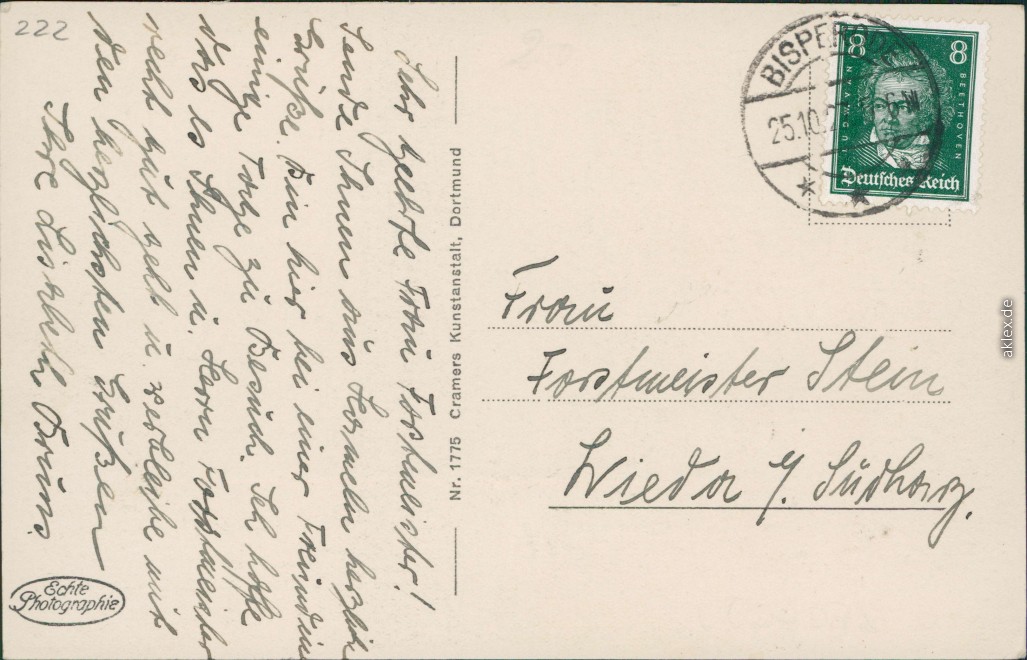 222
Sehr geehrte Frau Forstmeister!
Sende Ihnen aus Hameln herzliche
Grüße. Bin hier bei einer Freundin
einige Tage zu Besuch. Ich hoffe
das es Ihnen u. Herrn Forstmeister
recht gut geht u. verbleibe mit
den herzlichsten Grüßen
Ihre Lisabeth Bruns.
Echte
Photographie
Nr. 1775 Cramers Kunstanstalt, Dortmund
BISPERODE
25.10.2
8 8
LUDWIG VAN BEETHOVEN
Deutsches Reich
Frau
Forstmeister Stein
Wieda i/. Südharz.
aklex.de